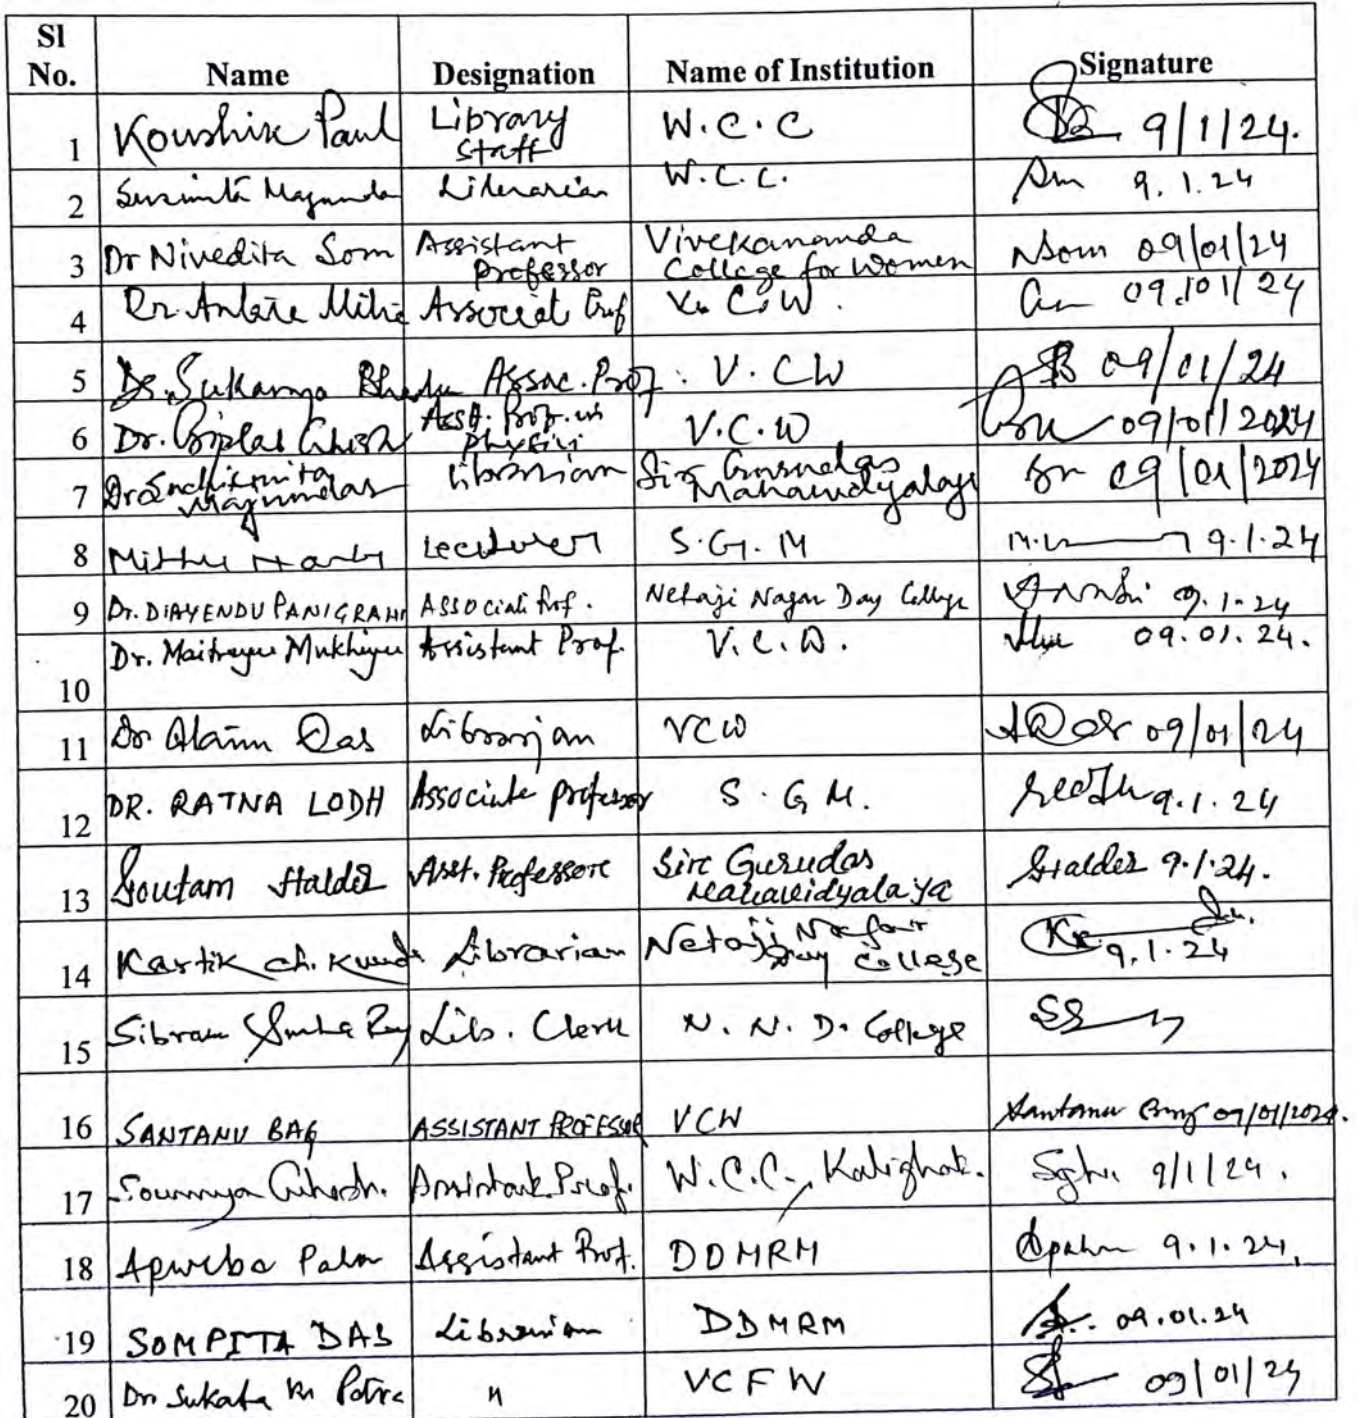 Sl No. Name Designation Name of Institution Signature
1 Koushik Paul Library Staff W.C.C 9/1/24.
2 Susmita Majumda Librarian W.C.C. 9.1.24
3 Dr Nivedita Som Assistant Professor Vivekananda College for Women NSom 09/01/24
4 Dr. Antara Mitra Associate Prof V. C. W. 09/01/24
5 Dr. Sukanya Assoc. Prof. V. CW 09/01/24
6 Dr. Biplab Ghosh Asst. Prof. in Physics V.C.W 09/01/2024
7 Dr Majumdar Librarian Sir Gurudas Mahavidyalaya 09/01/2024
8 Lecturer S.G.M 9.1.24
9 Dr. DIAYENDU PANIGRAHI Associate Prof. Netaji Nagar Day College 9.1.24
10 Dr. Maitreyee Assistant Prof. V.C.W. 09.01.24.
11 Dr Das Librarian VCW ADas 09/01/24
12 DR. RATNA LODH Associate professor S.G M. 9.1.24
13 Goutam Halder Asst. Professor Sir Gurudas Mahavidyalaya GHalder 9.1.24.
14 Kartik ch. Kundu Librarian Netaji Nagar Day College 9.1.24
15 Sibram Sinha Roy Lib. Clerk N. N. D. College
16 SANTANU BAG ASSISTANT PROFESSOR VCW Santanu Bag 09/01/2024.
17 Soumya Ghosh. Assistant Prof. W.C.C., Kalighat. 9/1/24.
18 Apurba Assistant Prof. DDMRM 9.1.24,
19 SOMPITA DAS Librarian DDMRM 09.01.24
20 Dr Patra 〃 VCFW 09/01/24